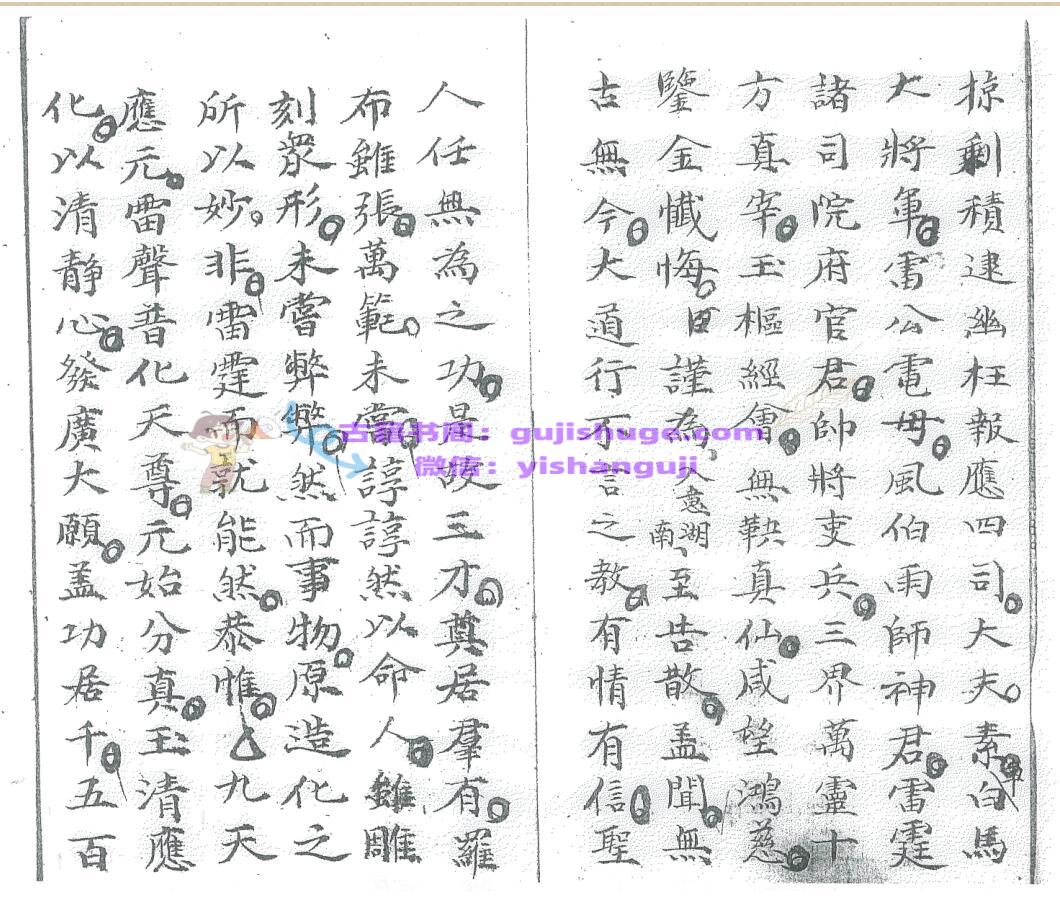 掠剩積逮幽枉報應四司大夫素白馬
大將軍雷公電毋風伯雨師神君雷霆
諸司院府官君帥將吏兵三界萬靈十
方真宰玉樞經會無鞅真仙咸垤鴻慈
鑒金懺悔謹為入意湖南至告散盖聞無
古無今大道行不言之教有情有信聖
人任無為之功是故三才奠居羣有羅
布雖張萬範未嘗諄諄然以命人雖雕
刻衆形未嘗弊弊然而事物原造化之
所以妙非雷霆而就能然恭惟九天
應元雷聲普化天尊元始分真玉清應
化以清静心發廣大願盖功居千五百
古籍书阁：gujishuge.com
微信：yishanguji